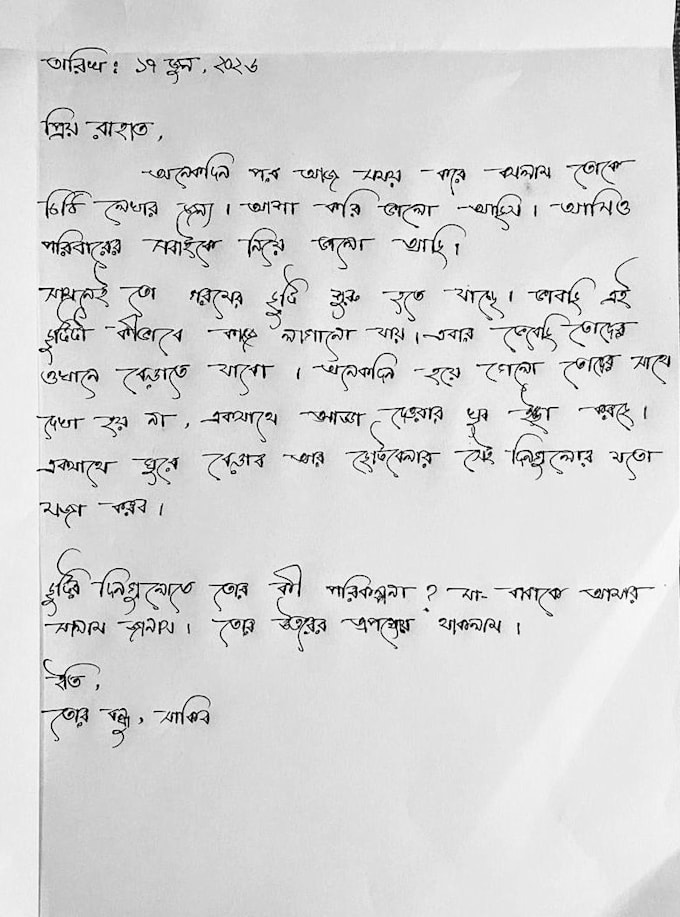 তারিখ : ১৭ জুন, ২০২৬
প্রিয় রাহাত,
অনেকদিন পর আজ সময় করে বসলাম তোকে
চিঠি লেখার জন্য। আশা করি ভালো আছিস। আমিও
পরিবারের সবাইকে নিয়ে ভালো আছি।
সামনেই তো গরমের ছুটি শুরু হতে যাচ্ছে। ভাবছি এই
ছুটিটা কীভাবে কাজে লাগানো যায়। এবার ভেবেছি তোদের
ওখানে বেড়াতে যাবো। অনেকদিন হয়ে গেলো তোদের সাথে
দেখা হয় না, একসাথে আড্ডা দেওয়ার খুব ইচ্ছা করছে।
একসাথে ঘুরে বেড়াব আর ছোটবেলার সেই দিনগুলোর মতো
মজা করব।
ছুটির দিনগুলোতে তোর কী পরিকল্পনা? মা-বাবাকে আমার
সালাম জানাস। তোর উত্তরের অপেক্ষায় থাকলাম।
ইতি,
তোর বন্ধু, সাকিব